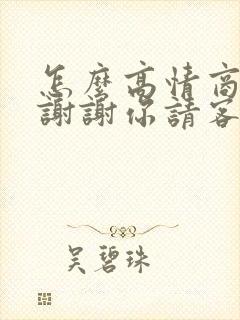 怎麼高情商
謝謝你請客
吳碧珠